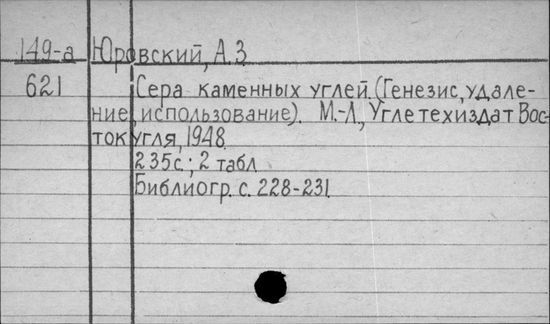 149-а Юровский, А.З
621 Сера каменных углей. (Генезис, удале-
ние, использование). М.-Л., Углетехиздат Вос-
токугля, 1948.
235с.; 2 табл
Библиогр. с. 228-231.